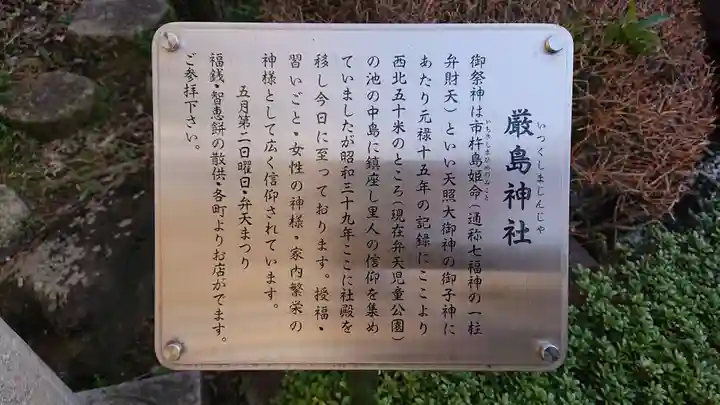 厳島神社
いつくしまじんじゃ
御祭神は市杵島姫命(通称七福神の一柱
いちきしまひめのみこと
弁財天)といい天照大御神の御子神に
あたり元禄十五年の記録にここより
西北五十米のところ(現在弁天児童公園)
の池の中島に鎮座し里人の信仰を集め
ていましたが昭和三十九年ここに社殿を
移し今日に至っております。授福・
習いごと・女性の神様・家内繁栄の
神様として広く信仰されています。
五月第二日曜日・弁天まつり
福銭・智恵餅の散供・各町よりお店がでます。
ご参拝下さい。